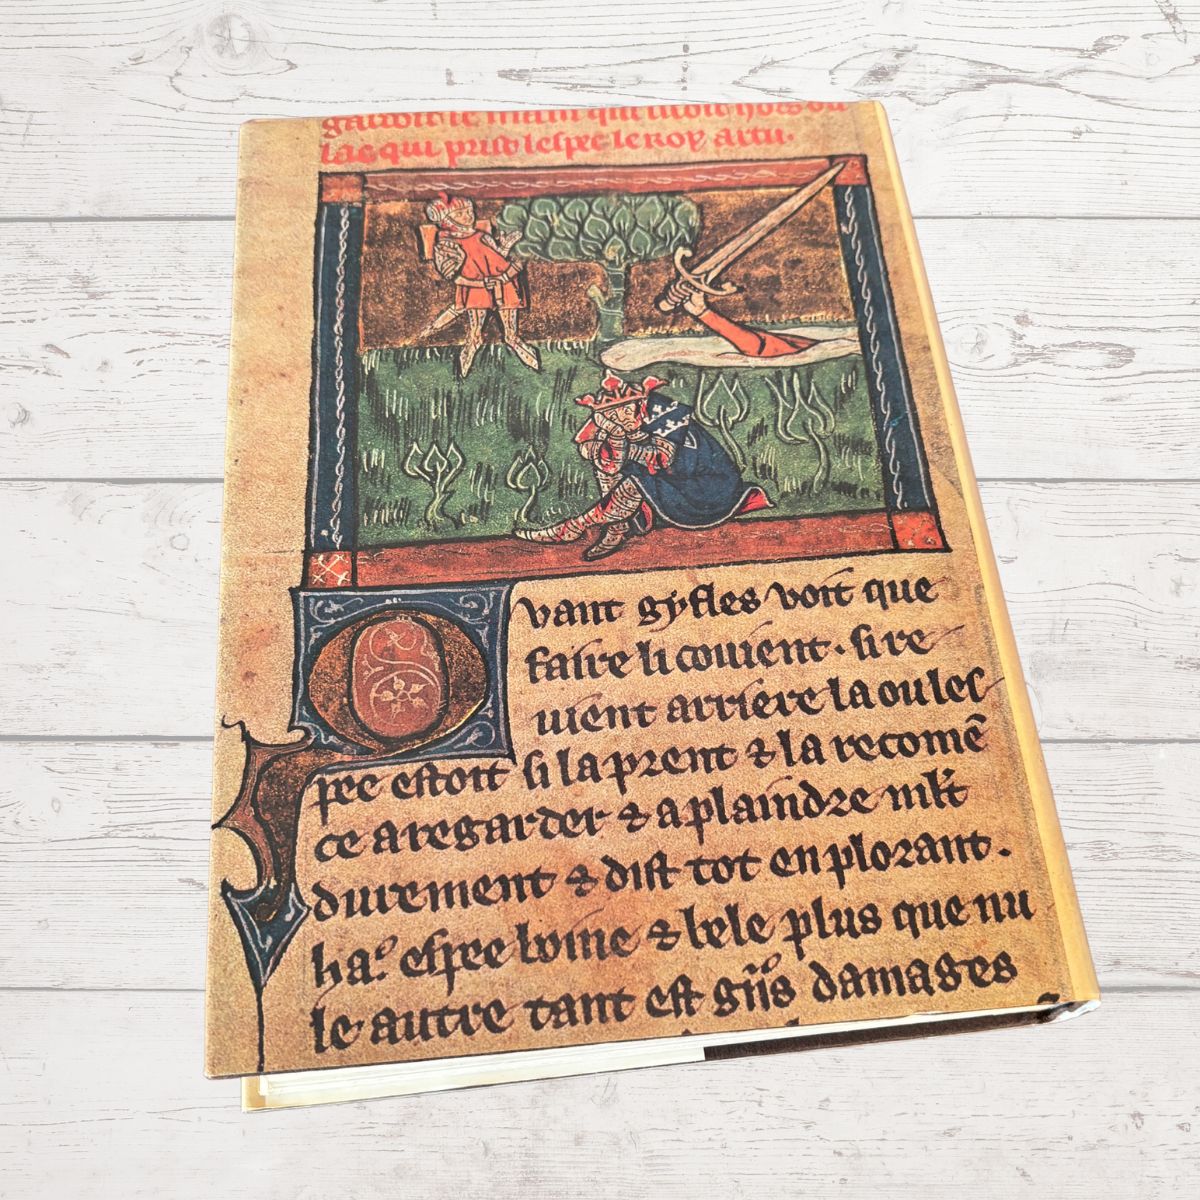 lac qui prist lespee le roy artu.
Qvant gyfles voit que
faire li couient. si re
uient arriere la ou les
pee estoit si la prent ⁊ la recomē
ce a regarder ⁊ a plaindre mlt
durement ⁊ dist tot en plorant.
ha.º espee boine ⁊ bele plus que nu
le autre tant est grãs damages